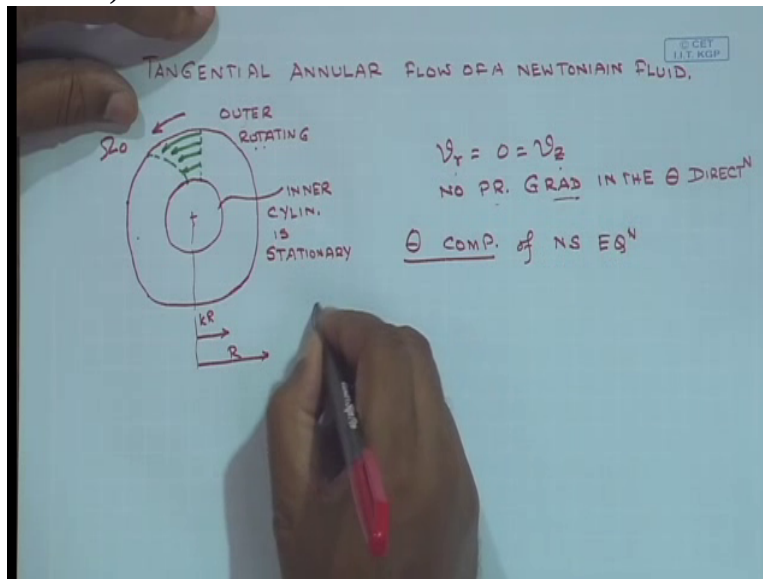 © CET
I.I.T. KGP
TANGENTIAL ANNULAR FLOW OF A NEWTONIAIN FLUID.
OUTER
ROTATING
Ω0
INNER
CYLIN.
IS
STATIONARY
kR
R
vr = 0 = vz
NO PR. GRAD IN THE θ DIRECTN
θ COMP. of NS EQN